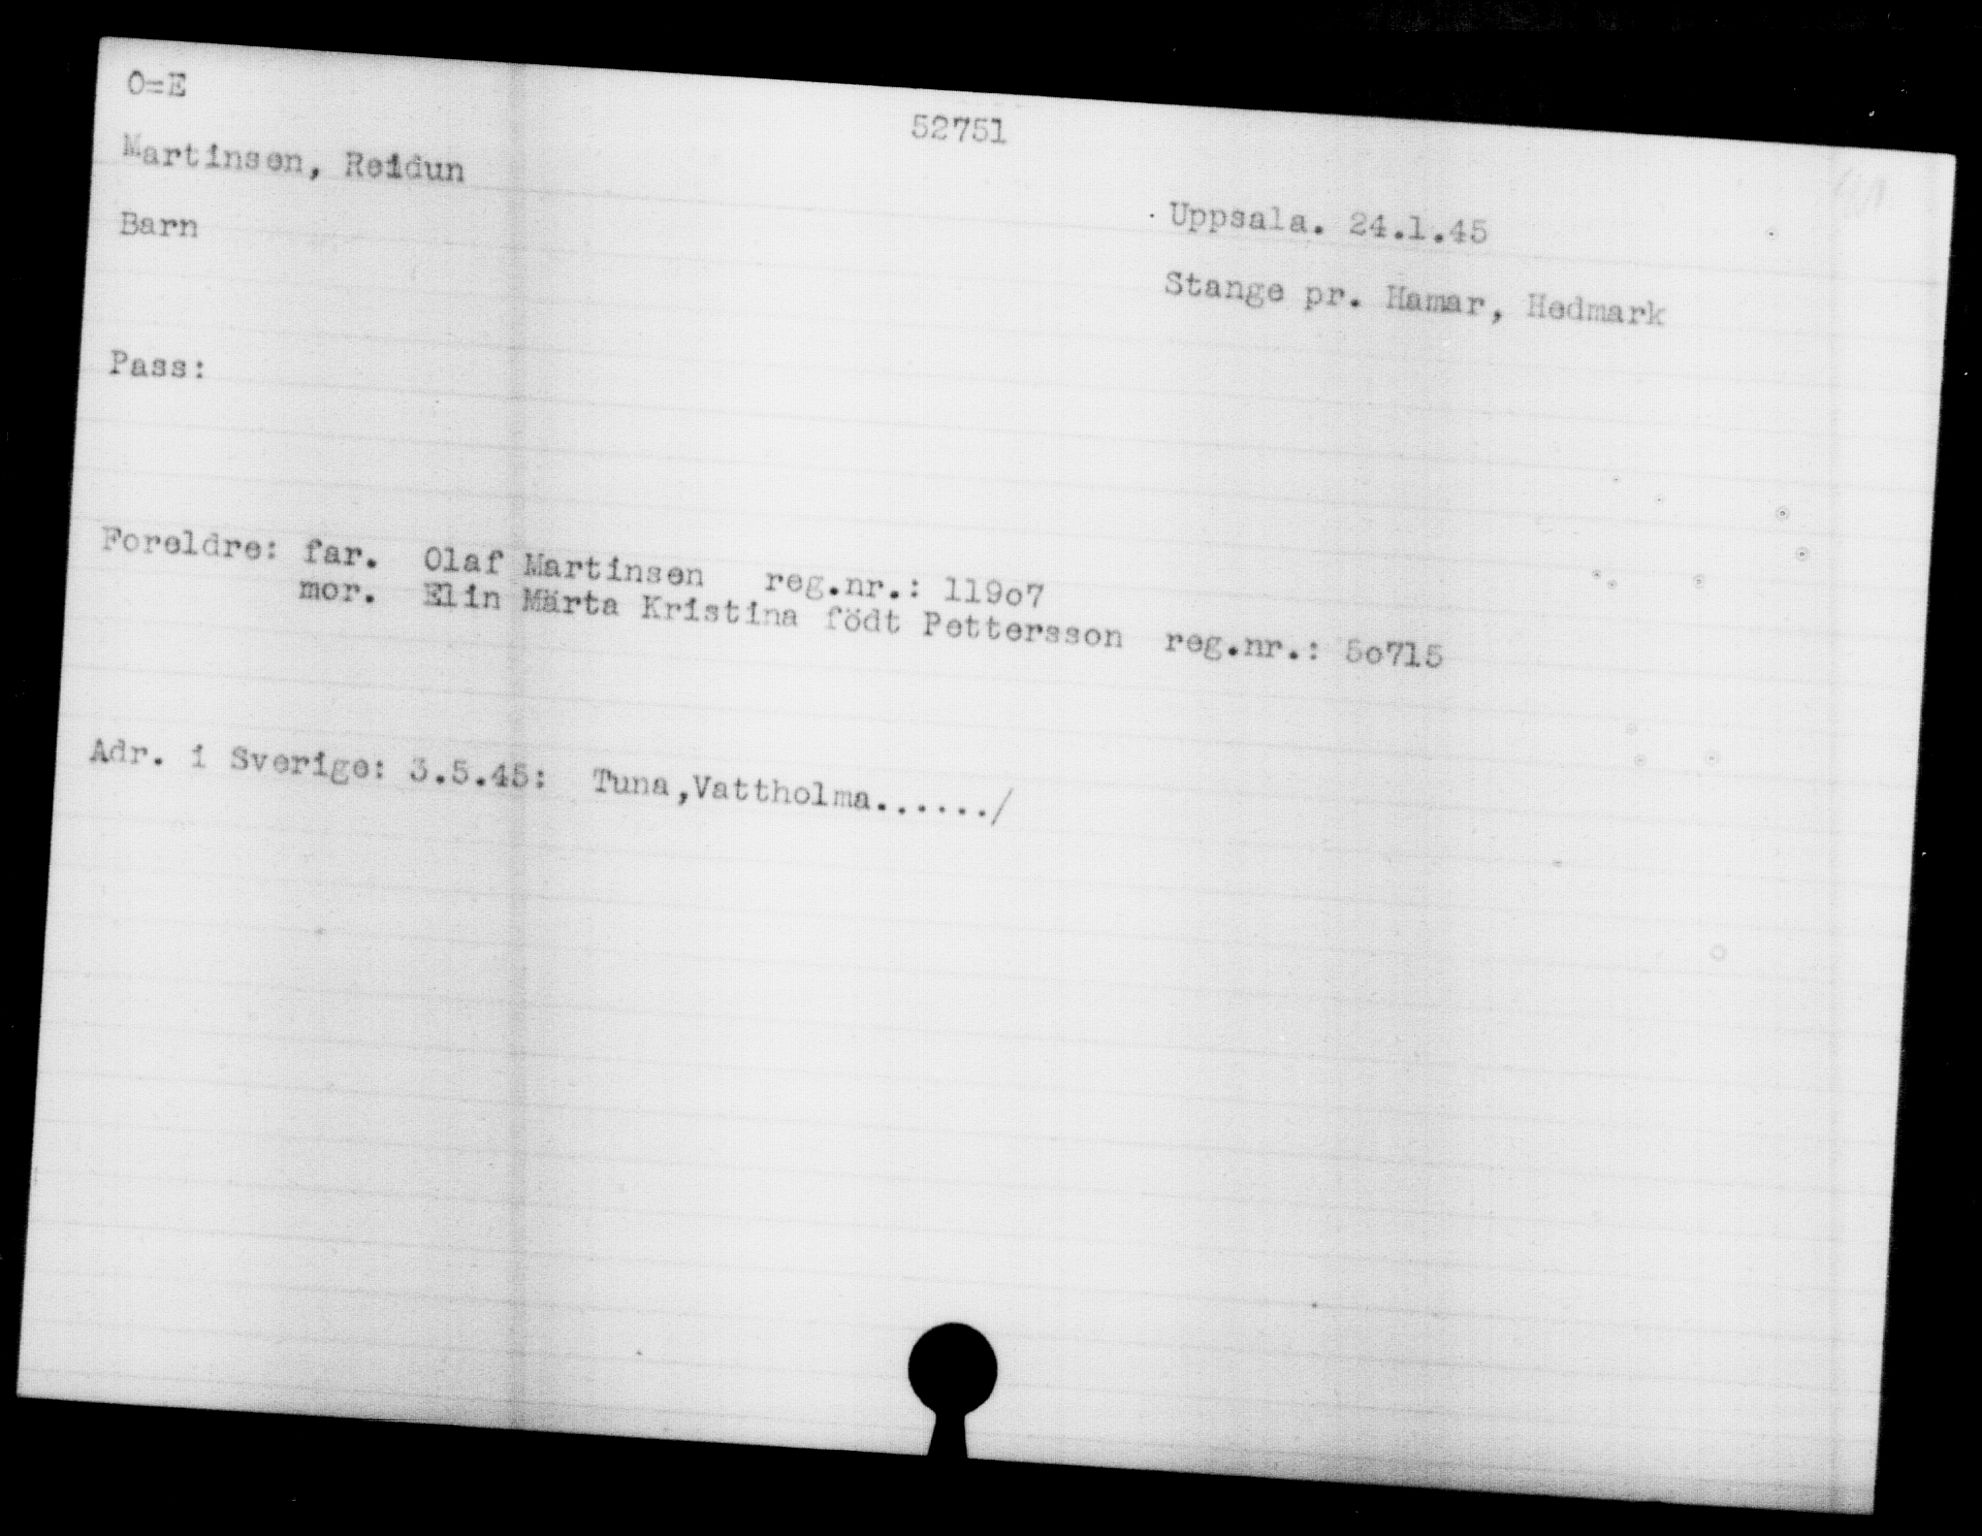 O=E
52751
Martinsen, Reidun
Uppsala. 24.1.45
Barn
Stange pr. Hamar, Hedmark
Pass:
Foreldre: far. Olaf Martinsen reg.nr.: 119o7
mor. Elin Märta Kristina födt Pettersson reg.nr.: 5o715
Adr. i Sverige: 3.5.45: Tuna,Vattholma....../